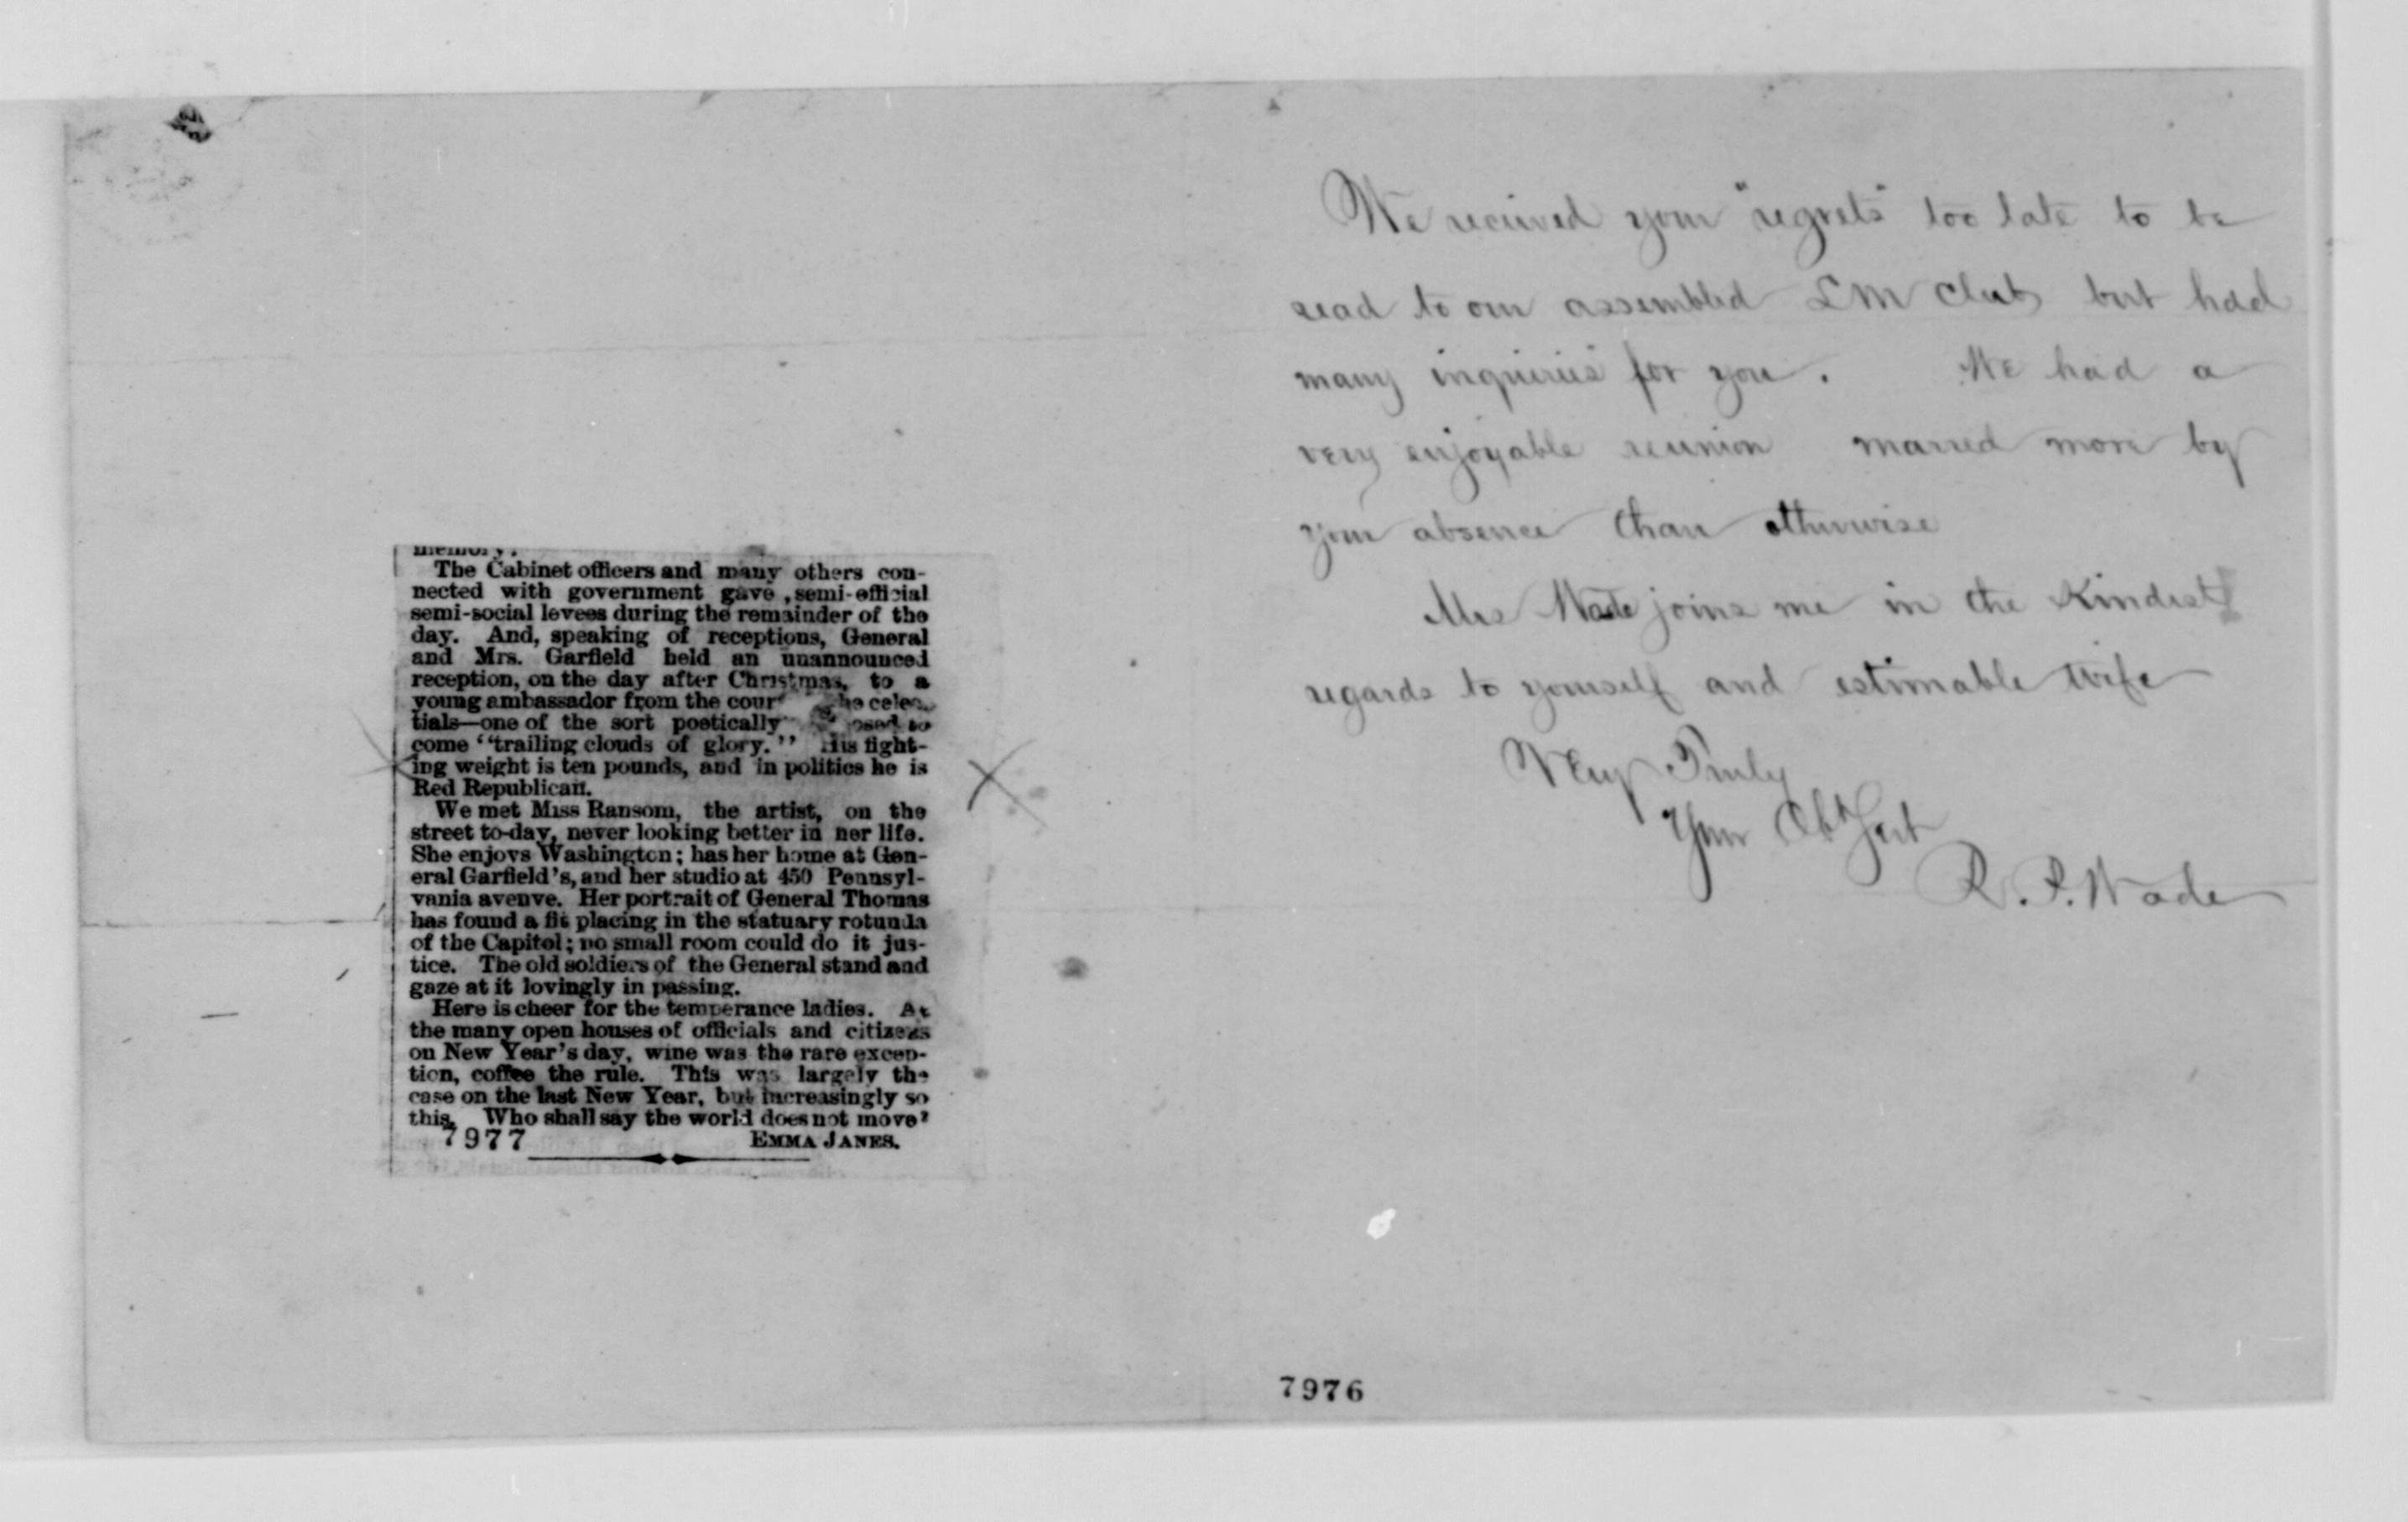 memory.
The Cabinet officers and many others con-
nected with government gave , semi-official
semi-social levees during the remainder of the
day. And, speaking of receptions, General
and Mrs. Garfield held an unannounced
reception, on the day after Christmas, to a
young ambassador from the cour he celes-
tials—one of the sort poetically osed to
come “trailing clouds of glory.” His fight-
ing weight is ten pounds, and in politics he is
Red Republican.
We met Miss Ransom, the artist, on the
street to-day, never looking better in her life.
She enjoys Washington; has her home at Gen-
eral Garfield's, and her studio at 450 Pennsyl-
vania avenve. Her portrait of General Thomas
has found a fit placing in the statuary rotunda
of the Capitol; no small room could do it jus-
tice. The old soldiers of the General stand and
gaze at it lovingly in passing.
Here is cheer for the temperance ladies. At
the many open houses of officials and citizens
on New Year's day, wine was the rare excep-
tion, coffee the rule. This was largely the
case on the last New Year, but increasingly so
this. Who shall say the world does not move?
7977 EMMA JANES.
We received your "regrets" too late to be
read to our assembled LM Club but had
many inquiries for you. We had a
very enjoyable reunion marred more by
your absence than otherwise
Mrs Wade joins me in the Kindest
regards to yourself and estimable wife
Very Truly
Your Obt Svt
R. P. Wade
7976